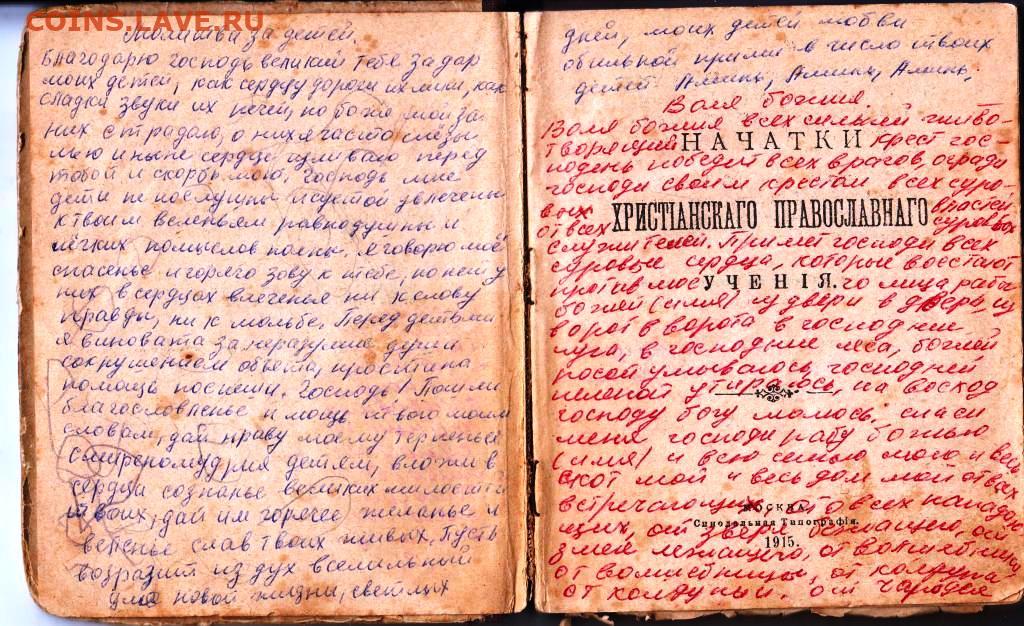 COINS.LAVE.RU
Молитва за детей.
Благодарю господь великий тебе за дар
моих детей, как сердцу дороги их лики, как
сладки звуки их речей, но боже мой за
них страдало, о них я часто слезы
лью и ныне сердце изливаю перед
тобой и скорбь мою. Господь мне
дети непослушны и суетой увлечены
к твоим веленьям равнодушны и
лёгких помыслов полны. Я говорю моё
спасенье и горячо зову к тебе, но нет у
них в сердцах влеченья ни к слову
правды, ни к мольбе. Перед детьми
я виновата за неразумие души
сокрушением объята, прости на
помощь поспеши. Господь! Пошли
благословленье и мощь твого моим
словам, дай нраву моему терпенье
смиренномудрия детям, вложи в
сердца сознанье великих милостей
твоих, дай им горячее желанье и
веленье слав твоих живых, Пусть
возразит из дух всесильный
для новой жизни, светлых
дней, моих детей любви
обильной прими в число твоих
детей Аминь, Аминь, Аминь.
Воля божия.
Воля божия всех сильней живо-
творящий крест гос-
НАЧАТКИ
подень победит всех врагов, огради
господи своим крестом всех суро-
вых властей
ХРИСТІАНСКАГО ПРАВОСЛАВНАГО
от всех суровых
служителей. Примет господи всех
суровые сердца, которые восстают
против моего лица, рабы
УЧЕНІЯ.
божией (имя) из двери в дверь, из
ворот в ворота в господние
луга, в господние леса, божией
росой умываюсь, господней
пеленой утираюсь, на восход
господу богу молюсь, спаси
меня господи рабу божью
(имя) и всю семью мою и весь
скот мой и весь дом мой от всех
встречающих, ото всех нападаю-
МОСКВА.
щих, от зверя бегащего, от
Синодальная Типографія.
1915.
змей лежащего, от волшебника
от волшебницы, от колдуна
от колдуньи, от чародея